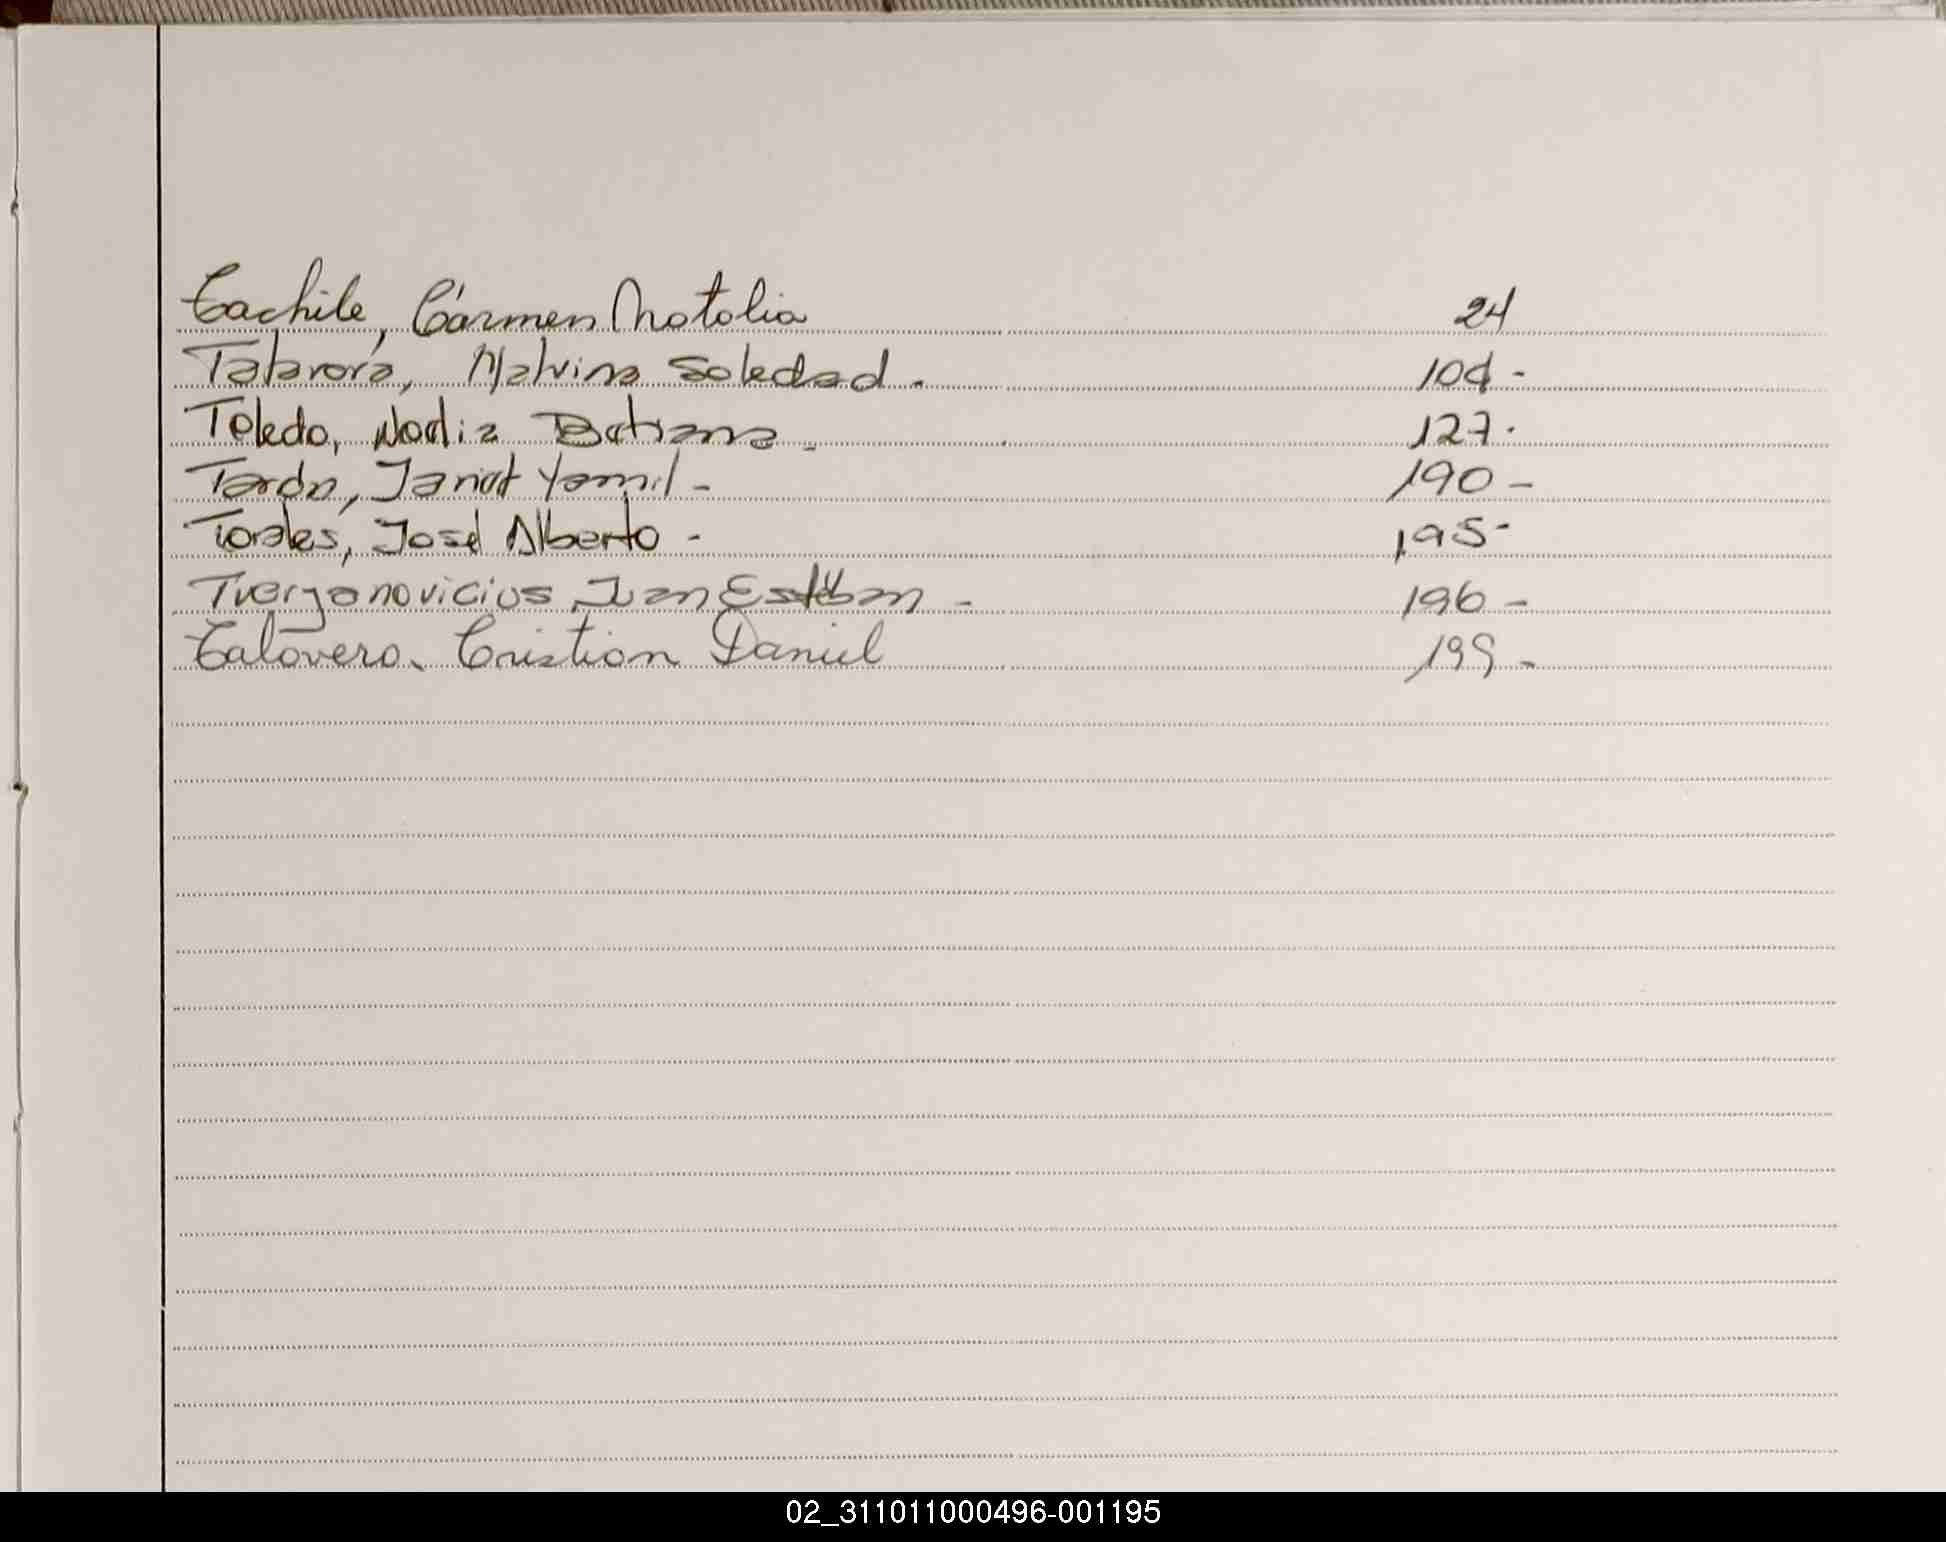 Tachile, Cármen Natalia 24
Talavera, Malvina Soledad. 104-
Toledo, Nadia Tatiana. 127.
Janet Yamil- 190-
Torales, José Alberto- 195-
Tverjanovicius Juan Esteban- 196-
Talavera, Cristian Daniel 199-
02_311011000496-001195